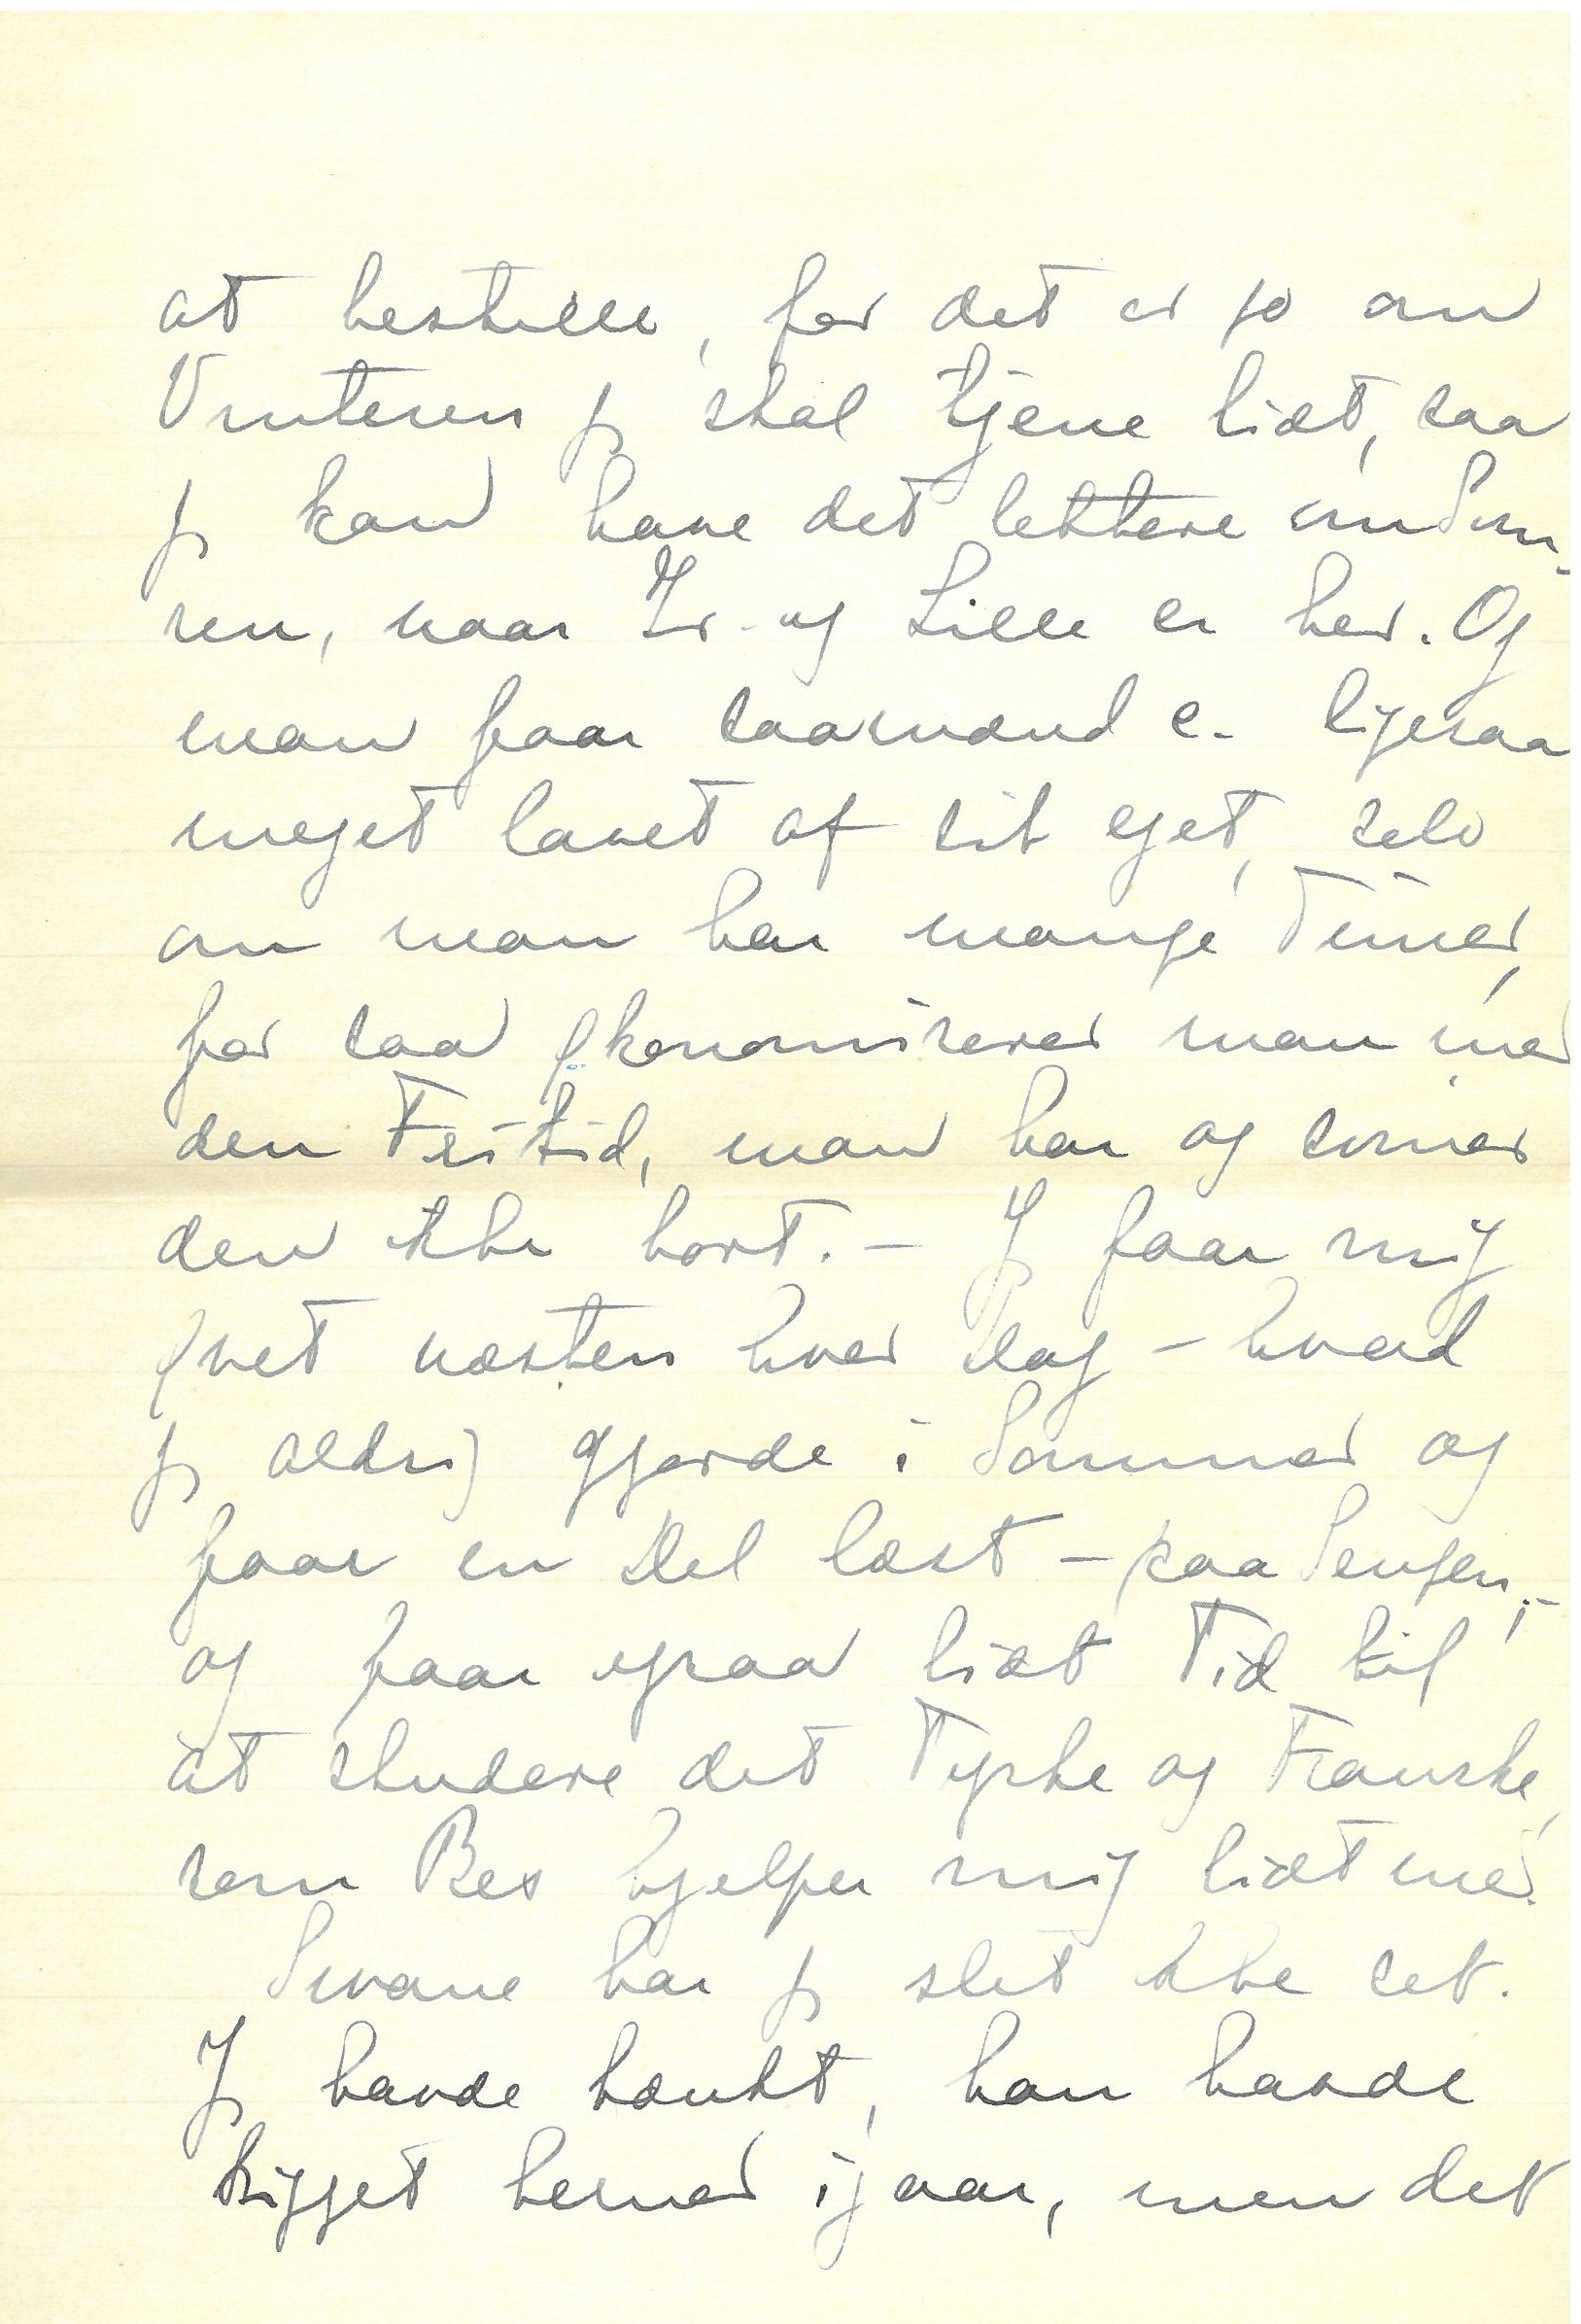 at bestille, for det er jo om
Vinteren jg skal tjene lidt, saa
jg kan have det lettere om Som-
ren, naar Ir. og Lille er her. Og
man faar saamænd e. ligesaa
meget lavet af sit eget, selv
om man har mange Timer,
for saa økonomiserer man med
den Fritid, man har og sviner
den ikke bort. – Jg faar mig
øvet næsten hver Dag – hvad
jg aldrig gjorde i Sommer og
faar en Del læst – paa Sengen, –
og faar ogsaa lidt Tid til
at studere det Tyske og Franske,
som Bes hjelper mig lidt med.
Swane har jg slet ikke set.
Jg havde tænkt, han havde
kigget herned igaar, men det